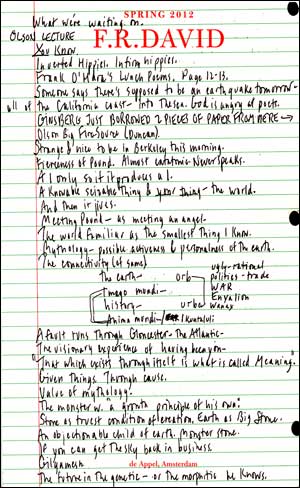 SPRING 2012
What we're waiting on.
OLSON LECTURE
F.R.DAVID
You Know.
Inverted Hippies. Infirm hippies.
Frank O'Hara's Lunch Poems, Page 12-13.
Someone says there's supposed to be an earthquake tomorrow-
all of the California coast- Into The sea. God is angry at poets.
GINSBERG JUST BORROWED 2 PIECES OF PAPER FROM HERE →
Olson Big Fire Source (Duncan).
Strange & nice to be in Berkeley this morning.
Fierceness of Pound. Almost catatonic-Never Speaks.
A I only so it produces a 1.
A Knowable seizable Thing & your thing - the world.
And then it jives.
Meeting Pound - as meeting an angel.
The world familiar as the smallest Thing I Know.
Mythology - possible activeness & personalness of the earth.
The connectivity (of same)
the earth- orb ugly-rational
politics - trade
Imago mundi- WAR
Enyalion
history- urbe wanax
Anima mundi- / Kuntaluli
A fault runs Through Gloucester-The Atlantic-
The visionary experience of having been you-
That which exists Through itself is what is called Meaning.
Given Things. Through cause.
Value of mythology?
The monster w. a growth principle of his own:
Stone as truest condition of creation. Earth as Big Stone.
An objectionable child of earth. Monster stone.
If you can get The sky back in business
Gilgamesh
de Appel, Amsterdam
The future in The genetic - or the morphic he Knows.